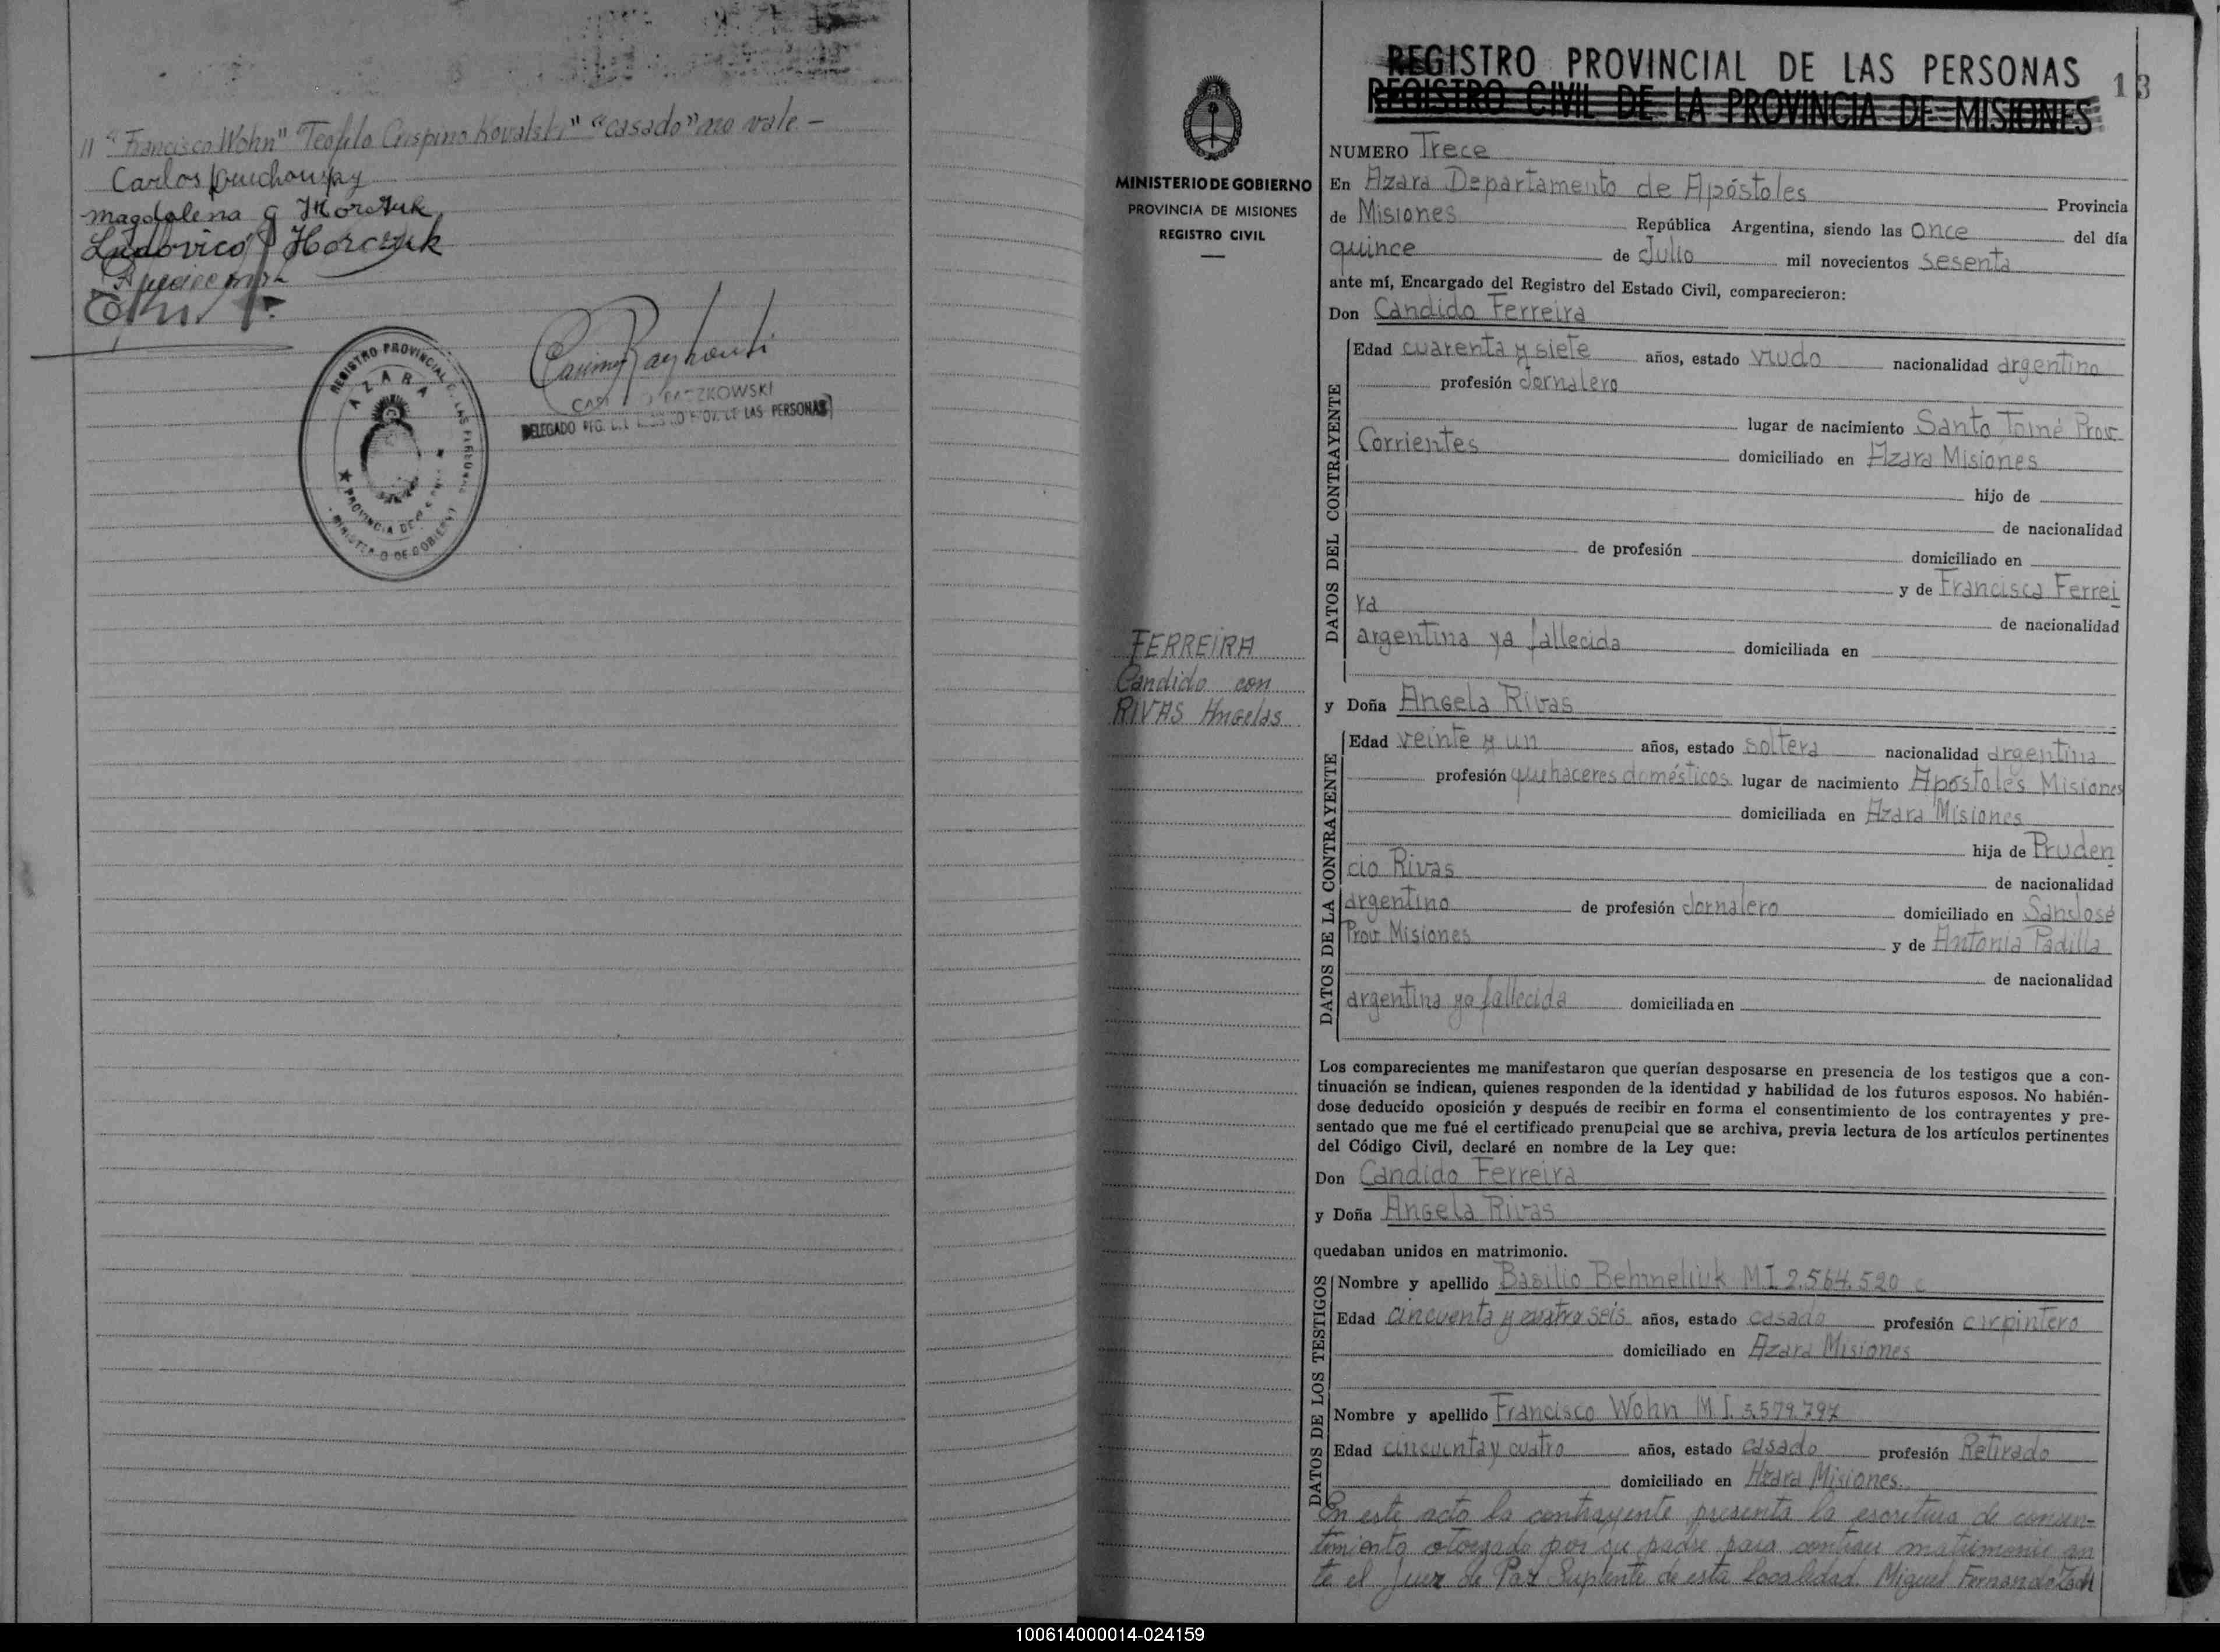 " "Francisco Wohn" "Teofilo Crispino Kovalski" "casado" no vale -
Carlos
Magdalena G Horczuk
Ludovico Horczuk
REGISTRO PROVINCIAL DE LAS PERSONAS
AZARA
PROVINCIA DE
MINISTERIO DE GOBIERNO
DELEGADO REG. LAS PERSONAS
MINISTERIO DE GOBIERNO
PROVINCIA DE MISIONES
REGISTRO CIVIL
FERREIRA
Candido con
RIVAS Angelas
REGISTRO PROVINCIAL DE LAS PERSONAS
13
REGISTRO CIVIL DE LA PROVINCIA DE MISIONES
NUMERO Trece
En Azara Departamento de Apóstoles Provincia
de Misiones República Argentina, siendo las once del día
quince de Julio mil novecientos sesenta
ante mí, Encargado del Registro del Estado Civil, comparecieron:
Don Candido Ferreira
DATOS DEL CONTRAYENTE
Edad cuarenta y siete años, estado viudo nacionalidad argentino
profesión Jornalero
lugar de nacimiento Santo Tomé Prov
Corrientes domiciliado en Azara Misiones
hijo de
de nacionalidad
de profesión domiciliado en
y de Francisca Ferrei
ra
de nacionalidad
argentina ya fallecida domiciliada en
y Doña Angela Rivas
DATOS DE LA CONTRAYENTE
Edad veinte y un años, estado soltera nacionalidad argentina
profesión quehaceres domésticos lugar de nacimiento Apóstoles Misiones
domiciliada en Azara Misiones
hija de Pruden
cio Rivas
de nacionalidad
argentino de profesión Jornalero domiciliado en San José
Prov Misiones y de Antonia Padilla
de nacionalidad
argentina ya fallecida domiciliada en
Los comparecientes me manifestaron que querían desposarse en presencia de los testigos que a con-
tinuación se indican, quienes responden de la identidad y habilidad de los futuros esposos. No habién-
dose deducido oposición y después de recibir en forma el consentimiento de los contrayentes y pre-
sentado que me fué el certificado prenupcial que se archiva, previa lectura de los artículos pertinentes
del Código Civil, declaré en nombre de la Ley que:
Don Candido Ferreira
y Doña Angela Rivas
quedaban unidos en matrimonio.
DATOS DE LOS TESTIGOS
Nombre y apellido Basilio Behmeliuk M.I 2.564.520
Edad cincuenta y cuatro seis años, estado casado profesión carpintero
domiciliado en Azara Misiones
Nombre y apellido Francisco Wohn M.I. 3.579.797
Edad cincuenta y cuatro años, estado casado profesión Retirado
domiciliado en Azara Misiones.
En este acto la contrayente presenta la escritura de consen-
timiento otorgado por su padre para contraer matrimonio an
te el Juez de Paz Suplente de esta Localidad. Miguel Fernando
100614000014-024159